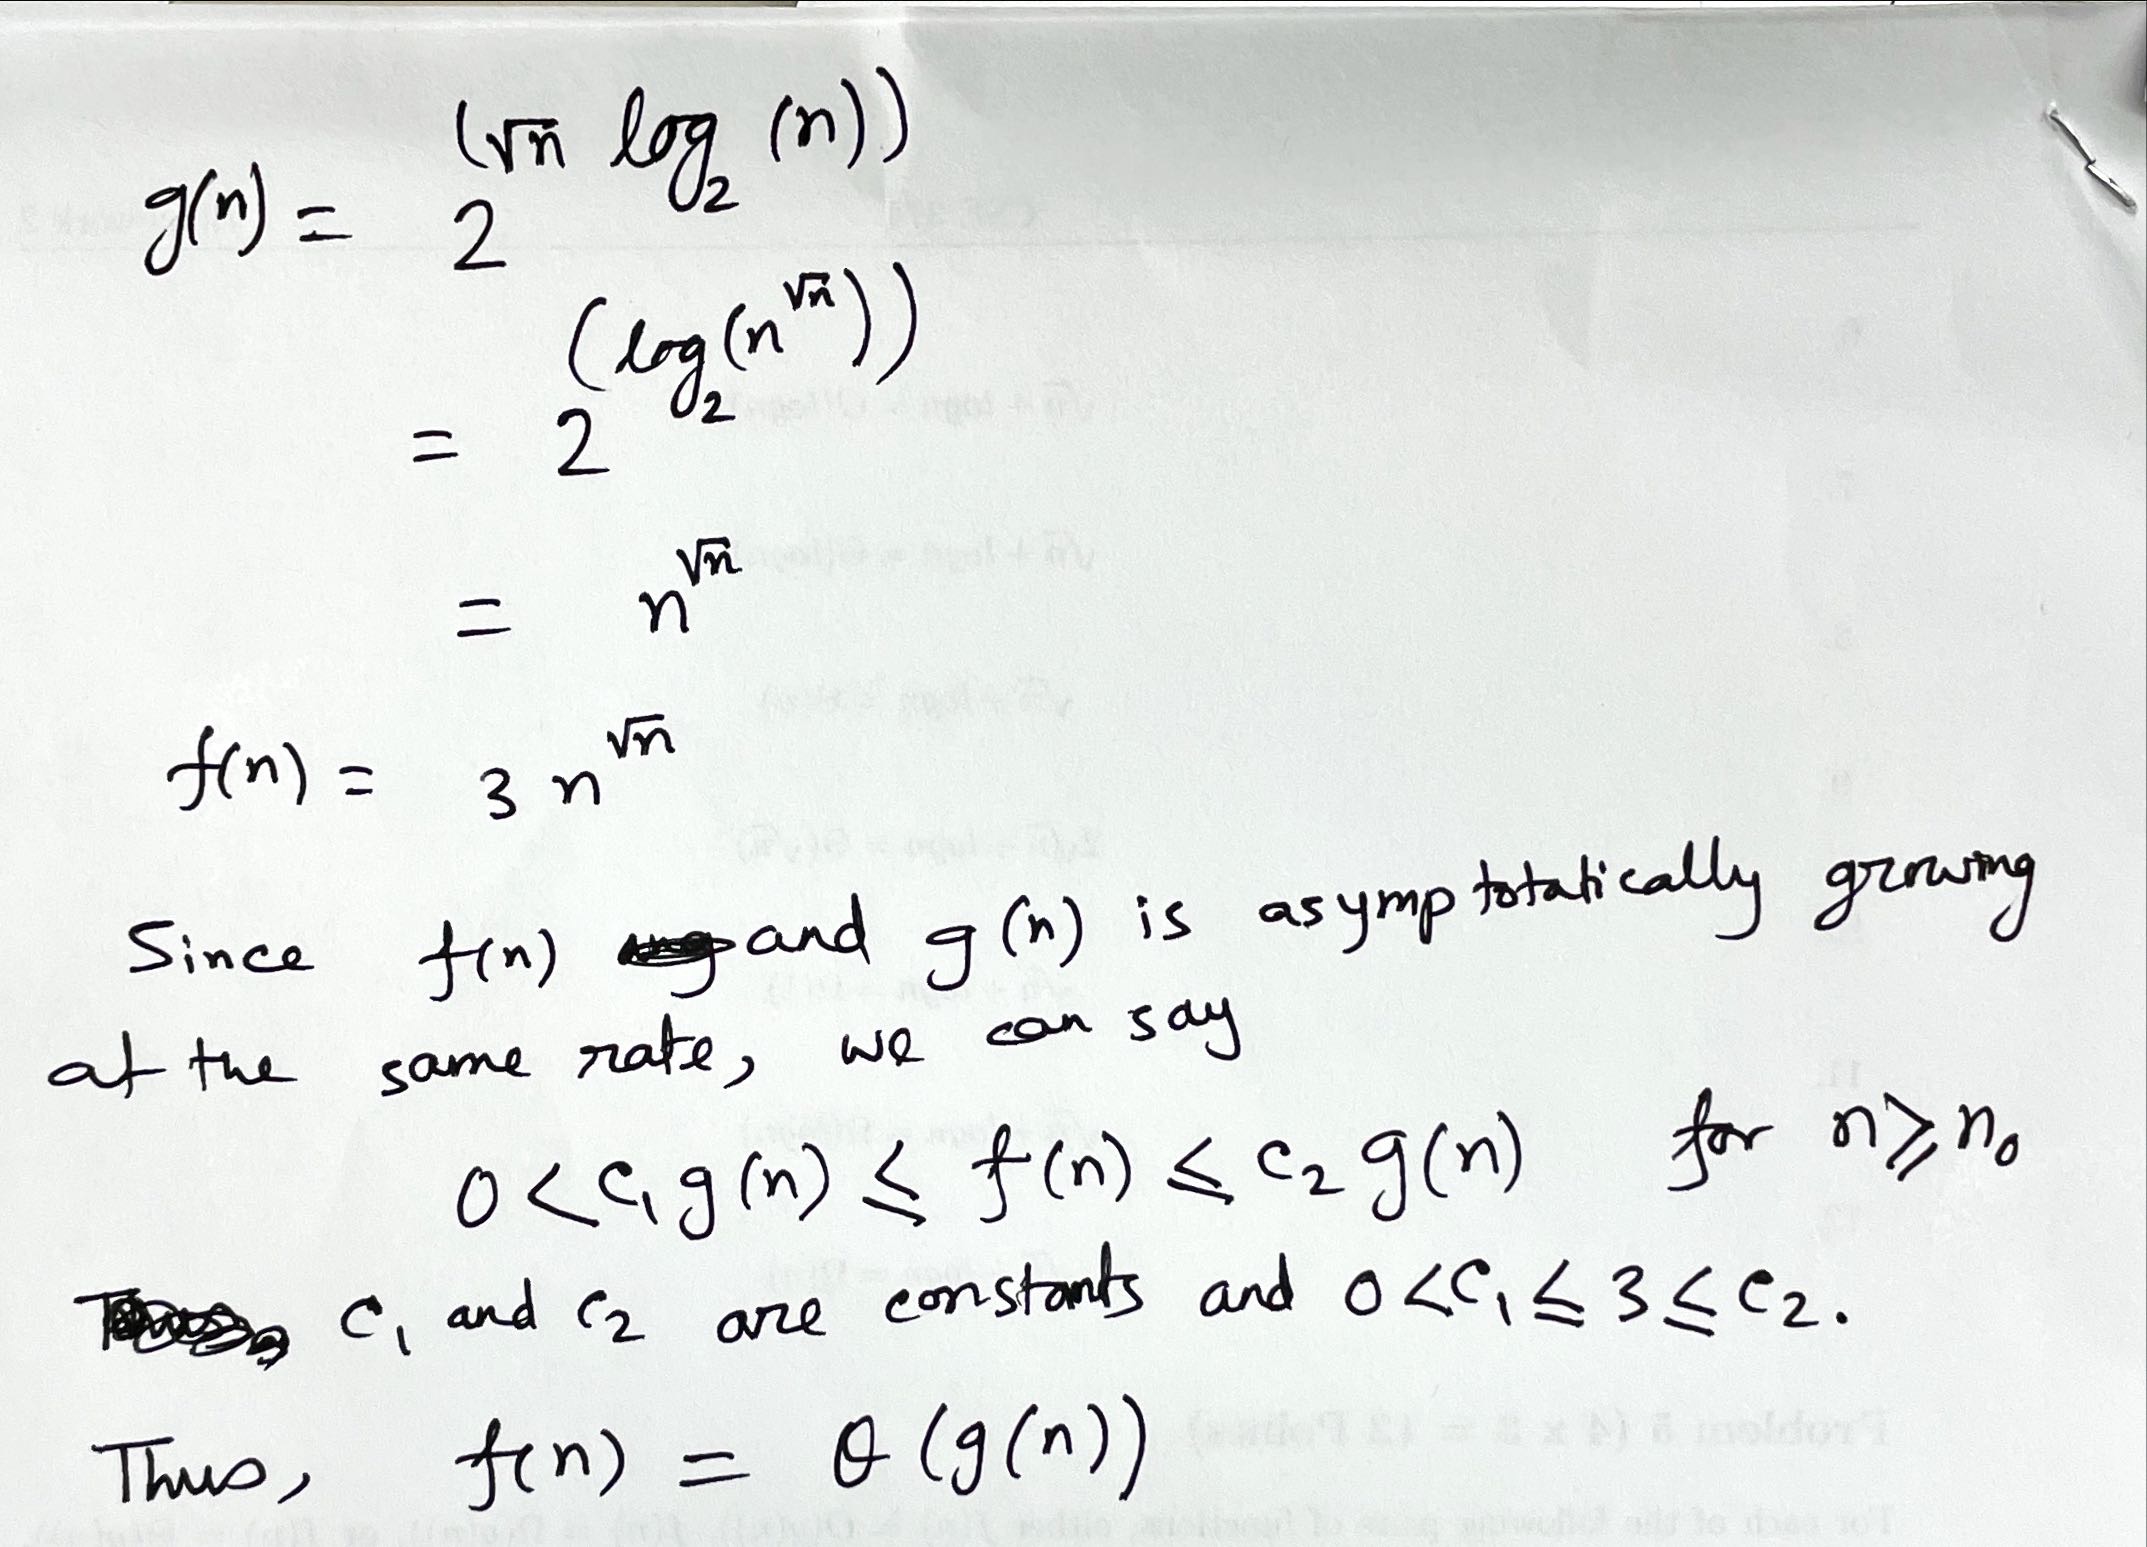 g(n) = 2^(√n log₂ (n))
= 2^(log₂(n^√n))
= n^√n
f(n) = 3 n^√n
Since f(n) and g(n) is asymptotatically growing
at the same rate, we can say
0 < c₁ g(n) ≤ f(n) ≤ c₂ g(n) for n ≥ n₀
c₁ and c₂ are constants and 0 < c₁ ≤ 3 ≤ c₂.
Thus, f(n) = θ (g(n))